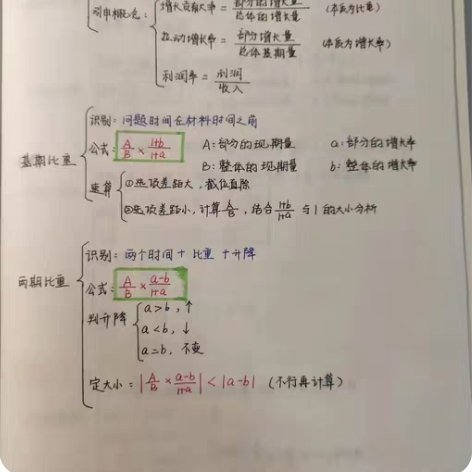 引申概念：
增长贡献率 = 部分的增长量/总体的增长量 (本质为比重)
拉动增长率 = 部分增长量/总体基期量 (本质为增长率)
利润率 = 利润/收入
基期比重
识别：问题时间在材料时间之前
公式：A/B × 1+b/1+a A：部分的现期量 a：部分的增长率
B：整体的现期量 b：整体的增长率
速算
①选项差距大，截位直除
②选项差距小，计算A/B，结合1+b/1+a与1的大小分析
两期比重
识别：两个时间+比重+升降
公式：A/B × a-b/1+a
判升降
a>b，↑
a<b，↓
a=b，不变
定大小 = |A/B × a-b/1+a| < |a-b| (不行再计算)